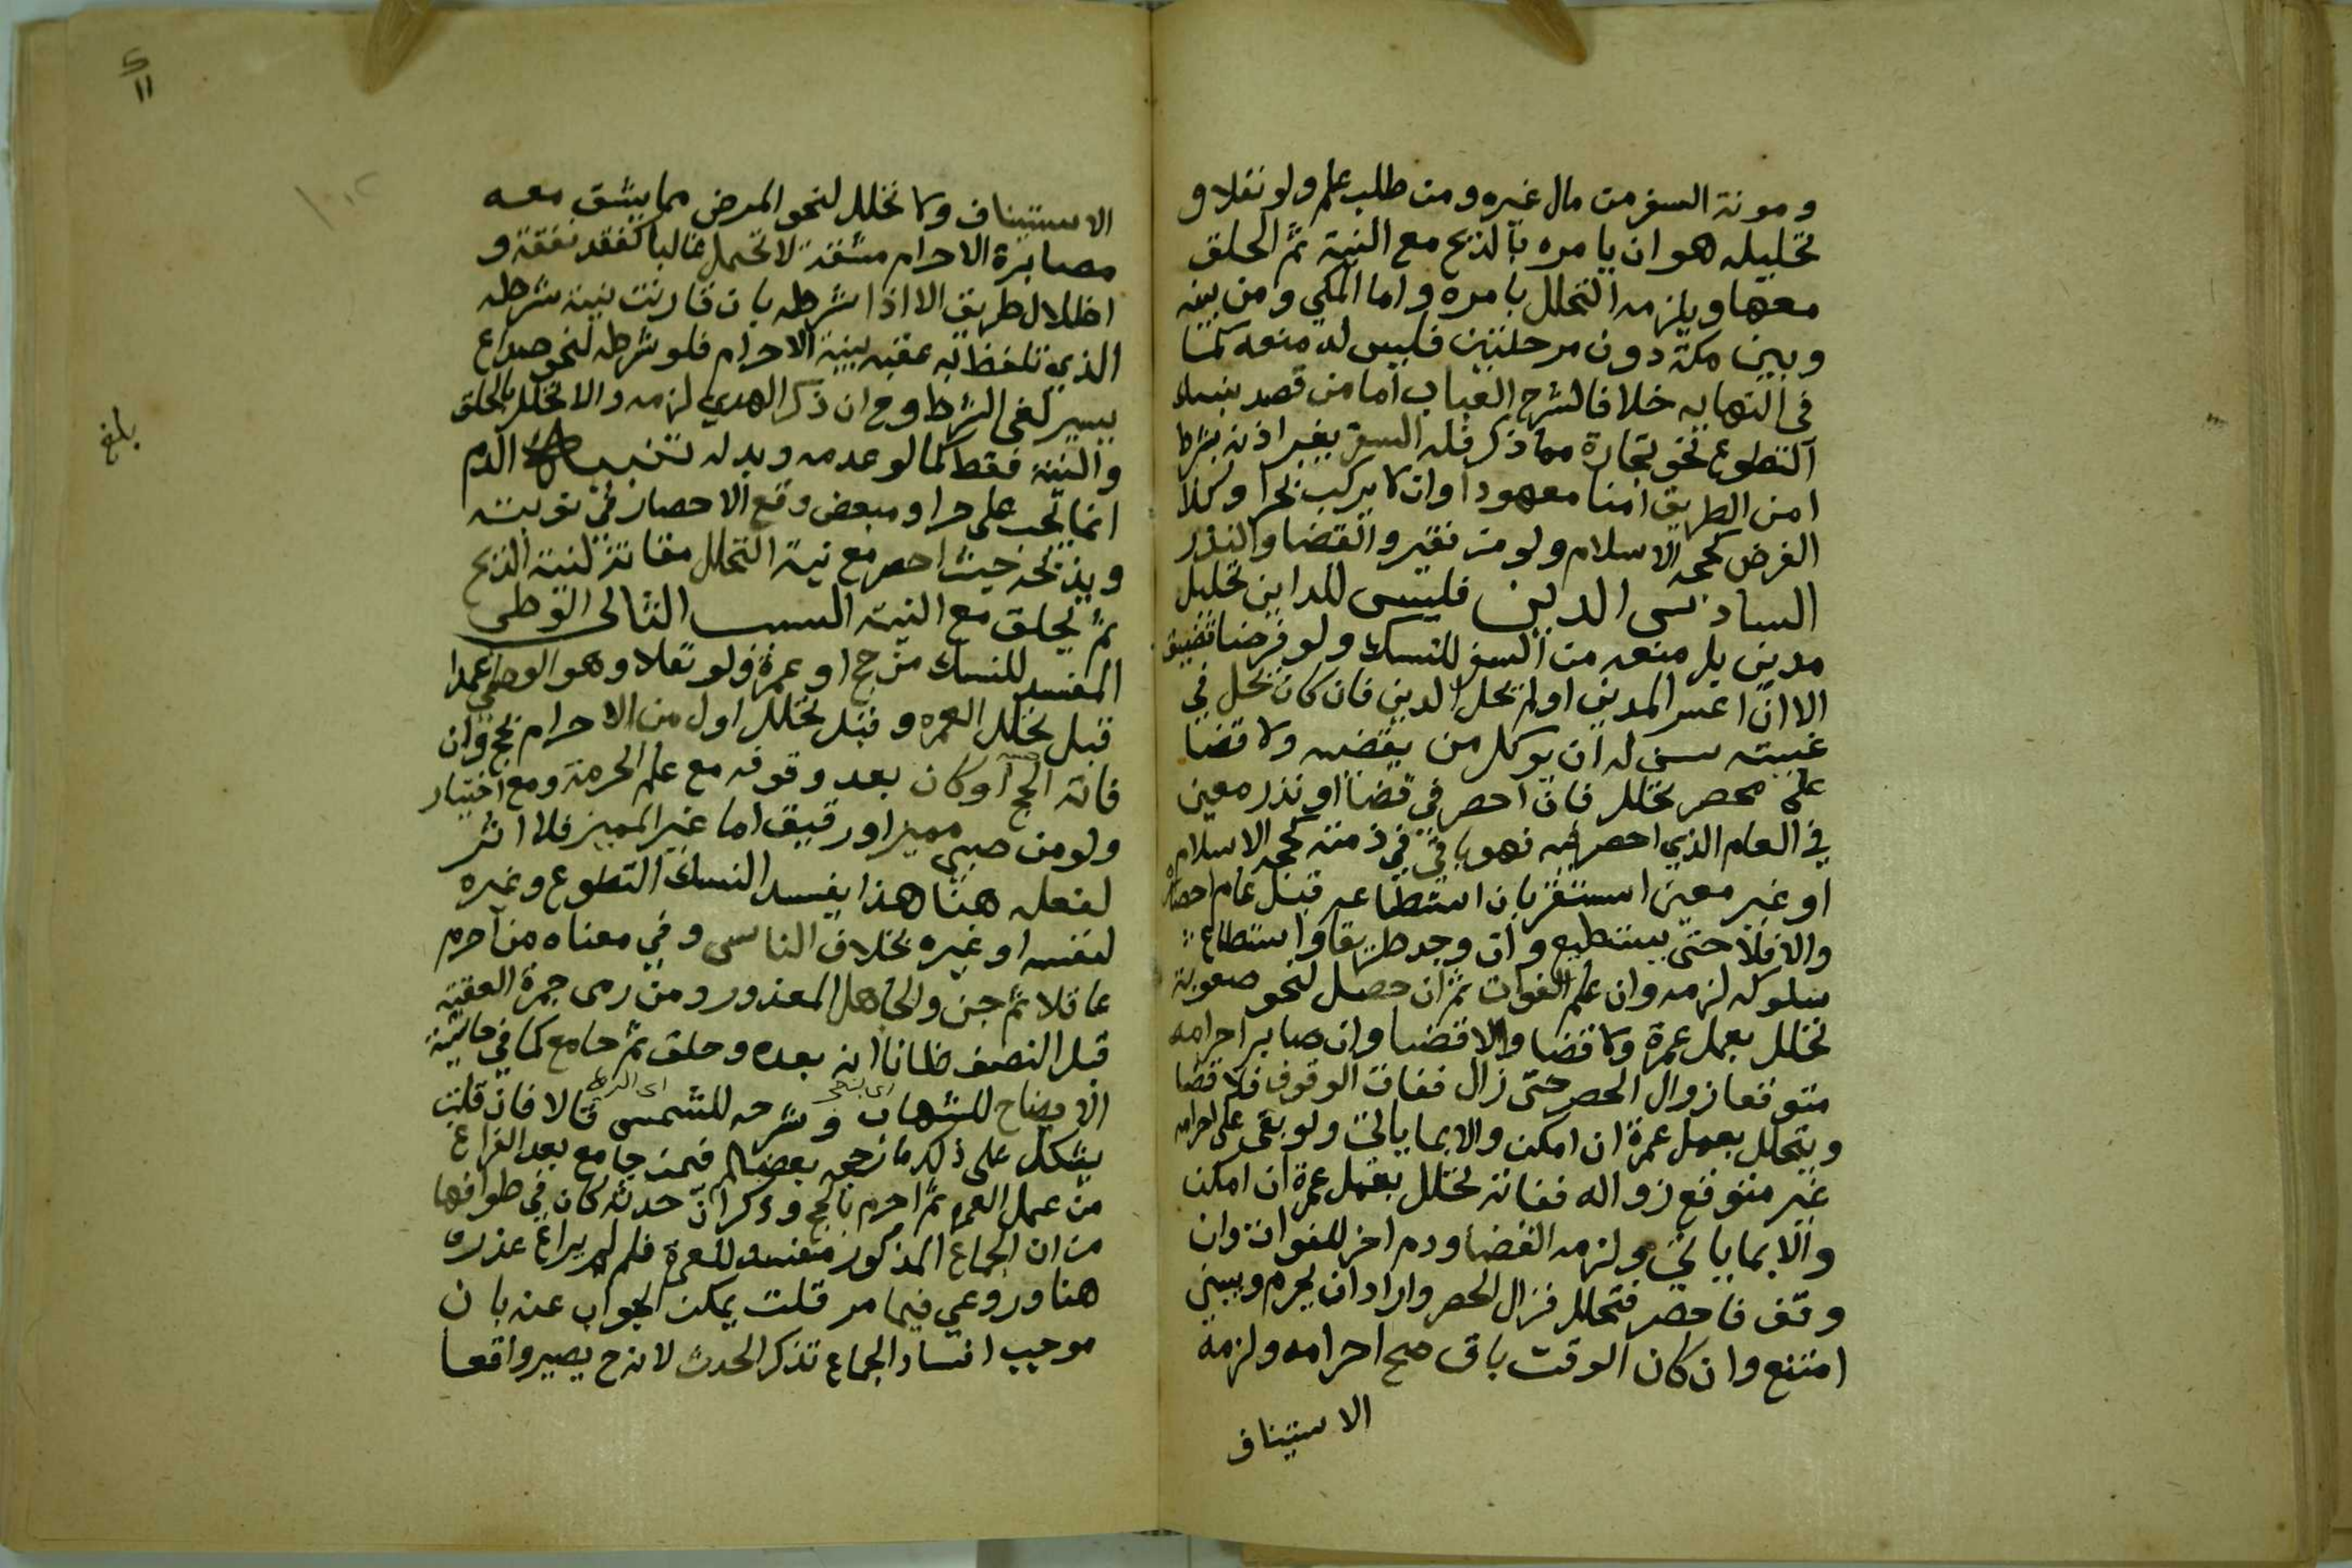 ومونة السفر من مال غيره ومن طلب علم ولو نفلا و
تحليله هو ان يامره بالذبح مع النية ثم الحلق
معها ويلزمه التحلل بامره واما المكي ومن بينه
وبين مكة دون مرحلتين فليس له منعه كما
في النهايه خلافا لشرح العباب اما من قصد بنسك
التطوع نحو تجارة مما ذكر فله السفر بغير اذنه بشرط
امن الطريق امنا معهودا وان لا يركب بحرا وكذا
الفرض كحجة الاسلام ولو من فقير والقضا والنذر
السادس الدين فليس للداين تحليل
مدين بل منعه من السفر للنسك ولو فرضا تضيق
الا ان اعسر المدين او لم يحل الدين فان كان يحل في
غيبته سن له ان يوكل من يقضيه ولا قضا
على محصر تحلل فان احصر في قضا او نذر معين
في العام الذي احصر فيه فهو باق في ذمته كحجة الاسلام
او غير معين استقر بان استطاعه قبل عام احصاره
والا فلا حتى يستطيع وان وجد طريقا واستطاع
سلوكه لزمه وان علم الفوات ثم ان حصل لنحو صعوبة
تحلل بعمل عمرة ولا قضا والا قضا وان صابر احرامه
متوقعا زوال الحصر حتى زال ففات الوقوف فلا قضا
ويتحلل بعمل عمرة ان امكن والا بما ياتي ولو بقي على احرامه
غير متوقع زواله ففاته تحلل بعمل عمرة ان امكن
والا بما ياتي ولزمه القضا ودم اخر للفوات وان
وقف فاحصر فتحلل فزال الحصر واراد ان يحرم ويبني
امتنع وان كان الوقت باق صح احرامه ولزمه
الاستيناف
الاستيناف ولا تحلل لنحو المرض مما يشق معه
مصابرة الاحرام مشقة لا تحتمل غالبا كفقد نفقة و
اظلال طريق الا اذا شرطه بان قارنت نية شرطه
الذي تلفظ به عقبه بنية الاحرام فلو شرطه لنحو صداع
يسير لغى الشرط وح ان ذكر الهدي لزمه والا تحلل بالحلق
والنية فقط كما لو عدمه وبدله تنبيه الدم
انما يجب على حر او مبعض وقع الاحصار في نوبته
ويذبحه حيث احصر مع نية التحلل مقارنة لنية الذبح
ثم يحلق مع النية السبب الثالث الوطي
المفسد للنسك من حج او عمرة ولو نفلا وهو الوطي عمدا
قبل تحلل العمره وقبل تحلل اول من الاحرام بحج وان
فاته الحج او كان بعد وقوفه مع علم الحرمة ومع اختيار
ولو من صبي مميز او رقيق اما غير المميز فلا اثر
لفعله هنا هذا يفسد النسك التطوع وغيره
لنفسه او غيره بخلاف الناسي وفي معناه من احرم
عاقلا ثم جن والجاهل المعذور ومن رمى جمرة العقبة
قبل النصف ظانا انه بعده وحلق ثم جامع كما في حاشية
الايضاح للشهاب وشرحه للشمس قالا فان قلت
يشكل على ذلك ما رجحه بعضهم فيمن جامع بعد الفراغ
من عمل العمره ثم احرم بالحج وذكر ان حدثه كان في طوافها
من ان الجماع المذكور مفسد للعمرة فلم لم يراع عذره
هنا وروعي فيما مر قلت يمكن الجواب عنه بان
موجب افساد الجماع تذكر الحدث لانه ح يصير واقعا
بلغ